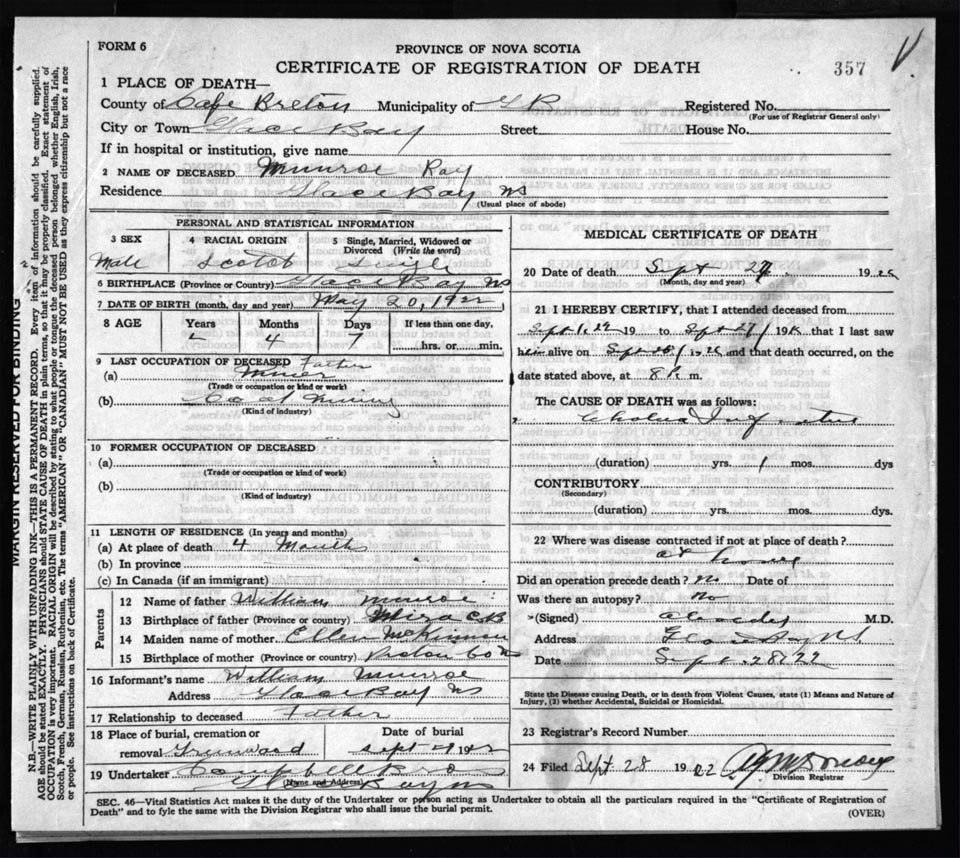 FORM 6
PROVINCE OF NOVA SCOTIA
CERTIFICATE OF REGISTRATION OF DEATH
357
1 PLACE OF DEATH—
County of Cape Breton Municipality of G B Registered No.
(For use of Registrar General only)
City or Town Glace Bay Street House No.
If in hospital or institution, give name
2 NAME OF DECEASED Munroe Ray
Residence Glace Bay NS
(Usual place of abode)
PERSONAL AND STATISTICAL INFORMATION
3 SEX 4 RACIAL ORIGIN 5 Single, Married, Widowed or Divorced (Write the word)
Male Scotch Single
6 BIRTHPLACE (Province or Country) Glace Bay NS
7 DATE OF BIRTH (month, day and year) May 20, 1922
8 AGE Years Months Days If less than one day,
4 7 hrs. or min.
9 LAST OCCUPATION OF DECEASED Father
(a) Miner
(Trade or occupation or kind of work)
(b) Coal Mining
(Kind of industry)
10 FORMER OCCUPATION OF DECEASED
(a)
(Trade or occupation or kind of work)
(b)
(Kind of industry)
11 LENGTH OF RESIDENCE (In years and months)
(a) At place of death 4 Months
(b) In province
(c) In Canada (if an immigrant)
Parents
12 Name of father William Munroe
13 Birthplace of father (Province or country) Mira CB
14 Maiden name of mother Ellen McKinnon
15 Birthplace of mother (Province or country) Pictou Co NS
16 Informant's name William Munroe
Address Glace Bay NS
17 Relationship to deceased Father
18 Place of burial, cremation or removal Greenwood Date of burial Sept
19 Undertaker Campbell Bros
(Name and Address)
Glace Bay NS
MEDICAL CERTIFICATE OF DEATH
20 Date of death Sept 27 19 22
(Month, day and year)
21 I HEREBY CERTIFY, that I attended deceased from
Sept 1, 22 19 to Sept 27 19 that I last saw
him alive on Sept and that death occurred, on the
date stated above, at 8 P. m.
The CAUSE OF DEATH was as follows:
Cholera Infantum
(duration) yrs. 1 mos. dys
CONTRIBUTORY
(Secondary)
(duration) yrs. mos. dys.
22 Where was disease contracted if not at place of death?
at home
Did an operation precede death? No Date of
Was there an autopsy? No
(Signed) M.D.
Address Glace Bay NS
Date Sept 28/22
State the Disease causing Death, or in death from Violent Causes, state (1) Means and Nature of Injury, (2) whether Accidental, Suicidal or Homicidal.
23 Registrar's Record Number
24 Filed Sept 28 19 22
Division Registrar
SEC. 46—Vital Statistics Act makes it the duty of the Undertaker or person acting as Undertaker to obtain all the particulars required in the "Certificate of Registration of
Death" and to fyle the same with the Division Registrar who shall issue the burial permit.
(OVER)
MARGIN RESERVED FOR BINDING
N.B.—WRITE PLAINLY WITH UNFADING INK—THIS IS A PERMANENT RECORD. Every item of information should be carefully supplied.
AGE should be stated EXACTLY. PHYSICIANS should STATE CAUSE OF DEATH in plain terms, so that it may be properly classified. Exact statement of
OCCUPATION is very important. RACIAL ORIGIN will be described by stating to what people or tongue the deceased person belonged whether English, Irish,
Scotch, French, German, Russian, Ruthenian, etc. The terms "AMERICAN" OR "CANADIAN" MUST NOT BE USED as they express citizenship but not a race
or people. See instructions on back of Certificate.